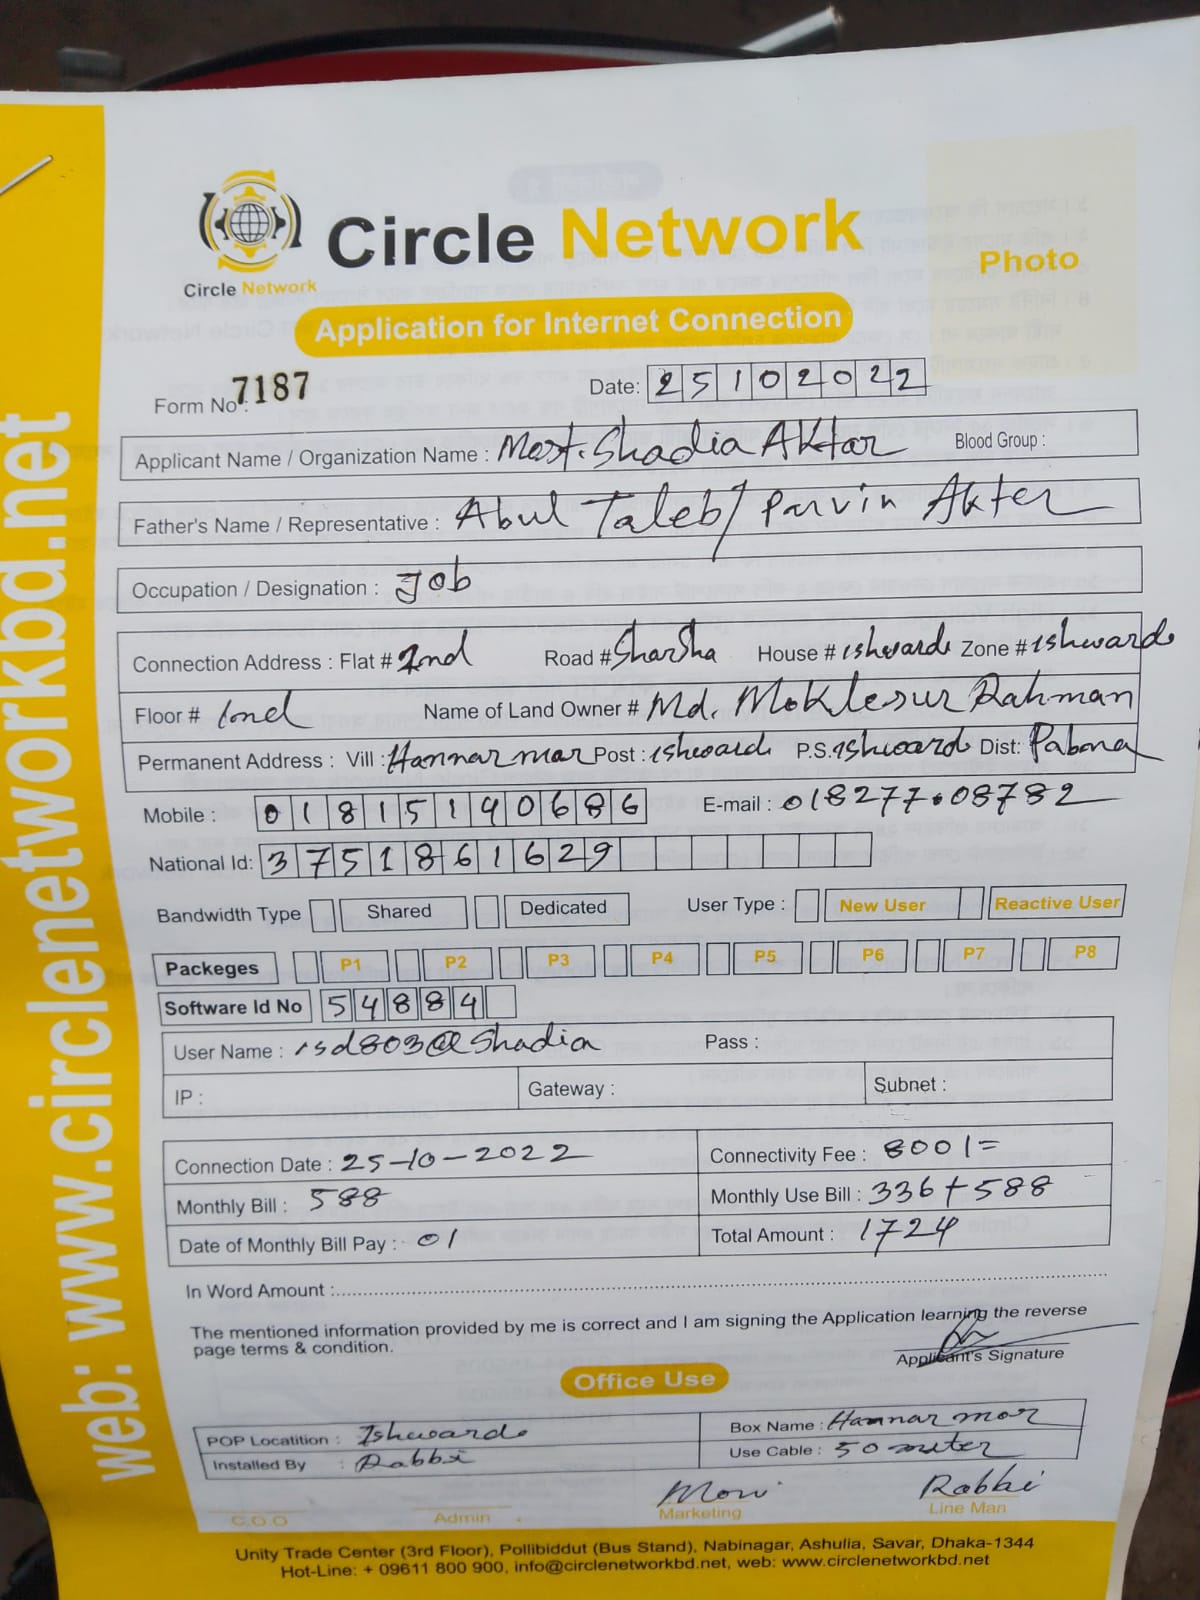 Circle Network
Circle Network
Photo
Application for Internet Connection
Form No : 7187 Date: 25102022
Applicant Name / Organization Name : Most. Shadia Aktar Blood Group :
Father's Name / Representative : Abul Taleb / Parvin Akter
Occupation / Designation : Job
Connection Address : Flat # 2nd Road # Sharsha House # ishwardi Zone # ishwardi
Floor # Name of Land Owner # Md. Moklesur Rahman
Permanent Address : Vill : Hannar mor Post : ishwardi P.S. ishwardi Dist: Pabna
Mobile : 01815190686 E-mail : 018277.08782
National Id: 3751861629
Bandwidth Type Shared Dedicated User Type : New User Reactive User
Packeges P1 P2 P3 P4 P5 P6 P7 P8
Software Id No 54884
User Name : isd803@Shadia Pass :
IP : Gateway : Subnet :
Connection Date : 25-10-2022 Connectivity Fee : 800/=
Monthly Bill : 588 Monthly Use Bill : 336+588
Date of Monthly Bill Pay : 01 Total Amount : 1724
In Word Amount :
The mentioned information provided by me is correct and I am signing the Application learning the reverse
page terms & condition.
Applicant's Signature
Office Use
POP Locatition : Ishwardi Box Name : Hannar mor
Installed By : Rabbi Use Cable : 50 meter
Moni Rabbi
C.O.O Admin Marketing Line Man
Unity Trade Center (3rd Floor), Pollibiddut (Bus Stand), Nabinagar, Ashulia, Savar, Dhaka-1344
Hot-Line: + 09611 800 900, info@circlenetworkbd.net, web: www.circlenetworkbd.net
web: www.circlenetworkbd.net